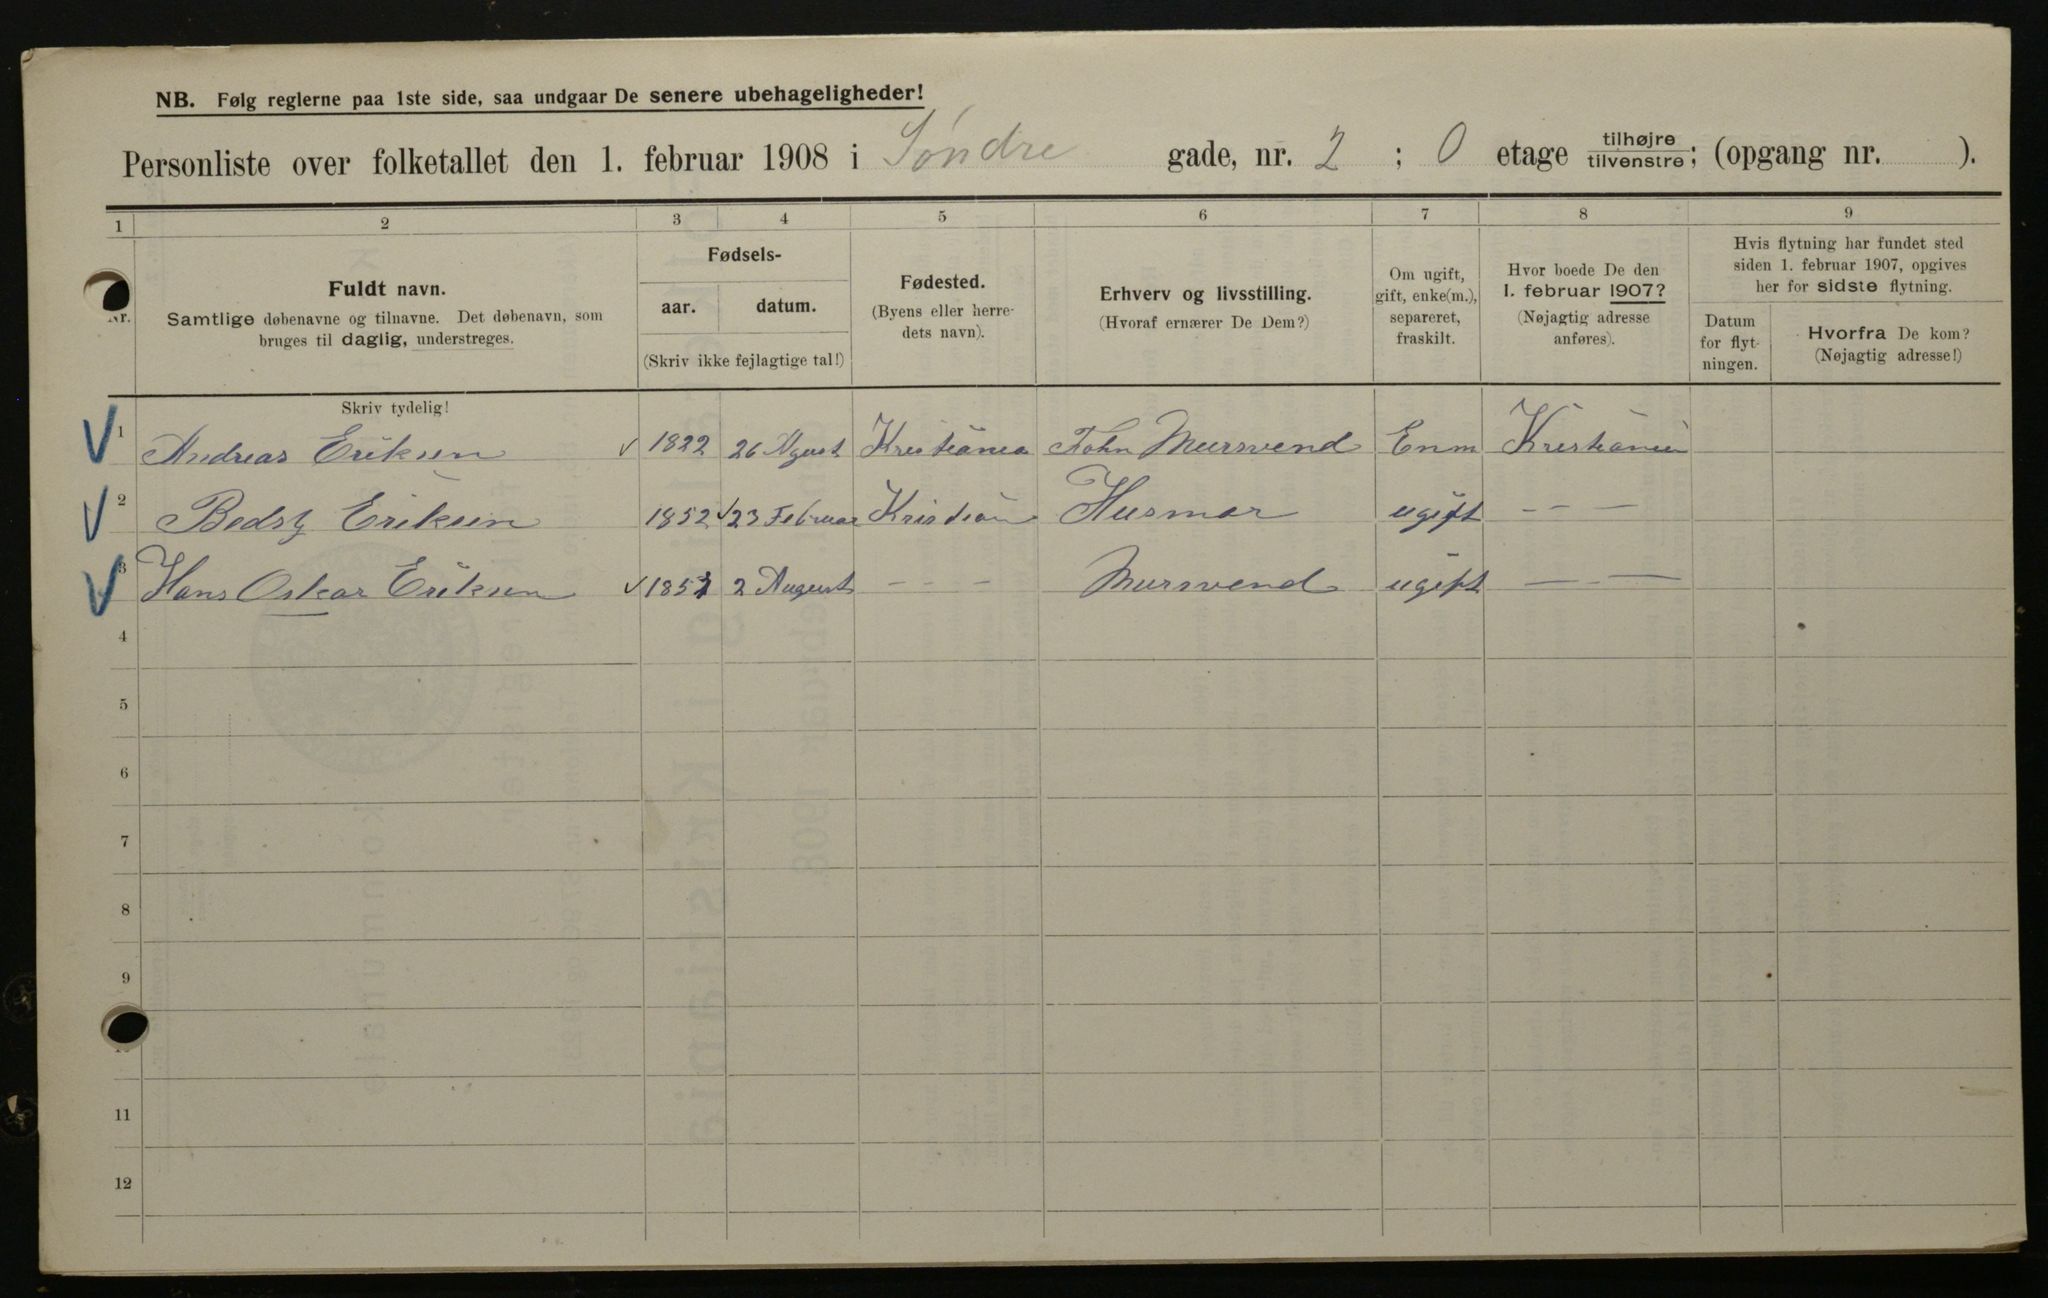 NB. Følg reglerne paa 1ste side, saa undgaar De senere ubehageligheder!
Personliste over folketallet den 1. februar 1908 i Søndre gade, nr. 2 ; 0 etage tilhøjre tilvenstre; (opgang nr. ).
1 2 3 4 5 6 7 8 9
Nr.
Fuldt navn.
Samtlige døbenavne og tilnavne. Det døbenavn, som
bruges til daglig, understreges.
Fødsels-
aar. datum.
(Skriv ikke fejlagtige tal!)
Fødested.
(Byens eller herre-
dets navn).
Erhverv og livsstilling.
(Hvoraf ernærer De Dem?)
Om ugift,
gift, enke(m.),
separeret,
fraskilt.
Hvor boede De den
1. februar 1907?
(Nøjagtig adresse
anføres).
Hvis flytning har fundet sted
siden 1. februar 1907, opgives
her for sidste flytning.
Datum
for flyt-
ningen.
Hvorfra De kom?
(Nøjagtig adresse!)
Skriv tydelig!
1 Andreas Eriksen 1822 26 Agust Kristiania Mursvend Enm Kristiania
2 Bedsy Eriksen 1852 23 Februar Kristian Husmor ugift — — —
3 Hans Oskar Eriksen 1851 2 August — — — Mursvend ugift — — —
4
5
6
7
8
9
11
12